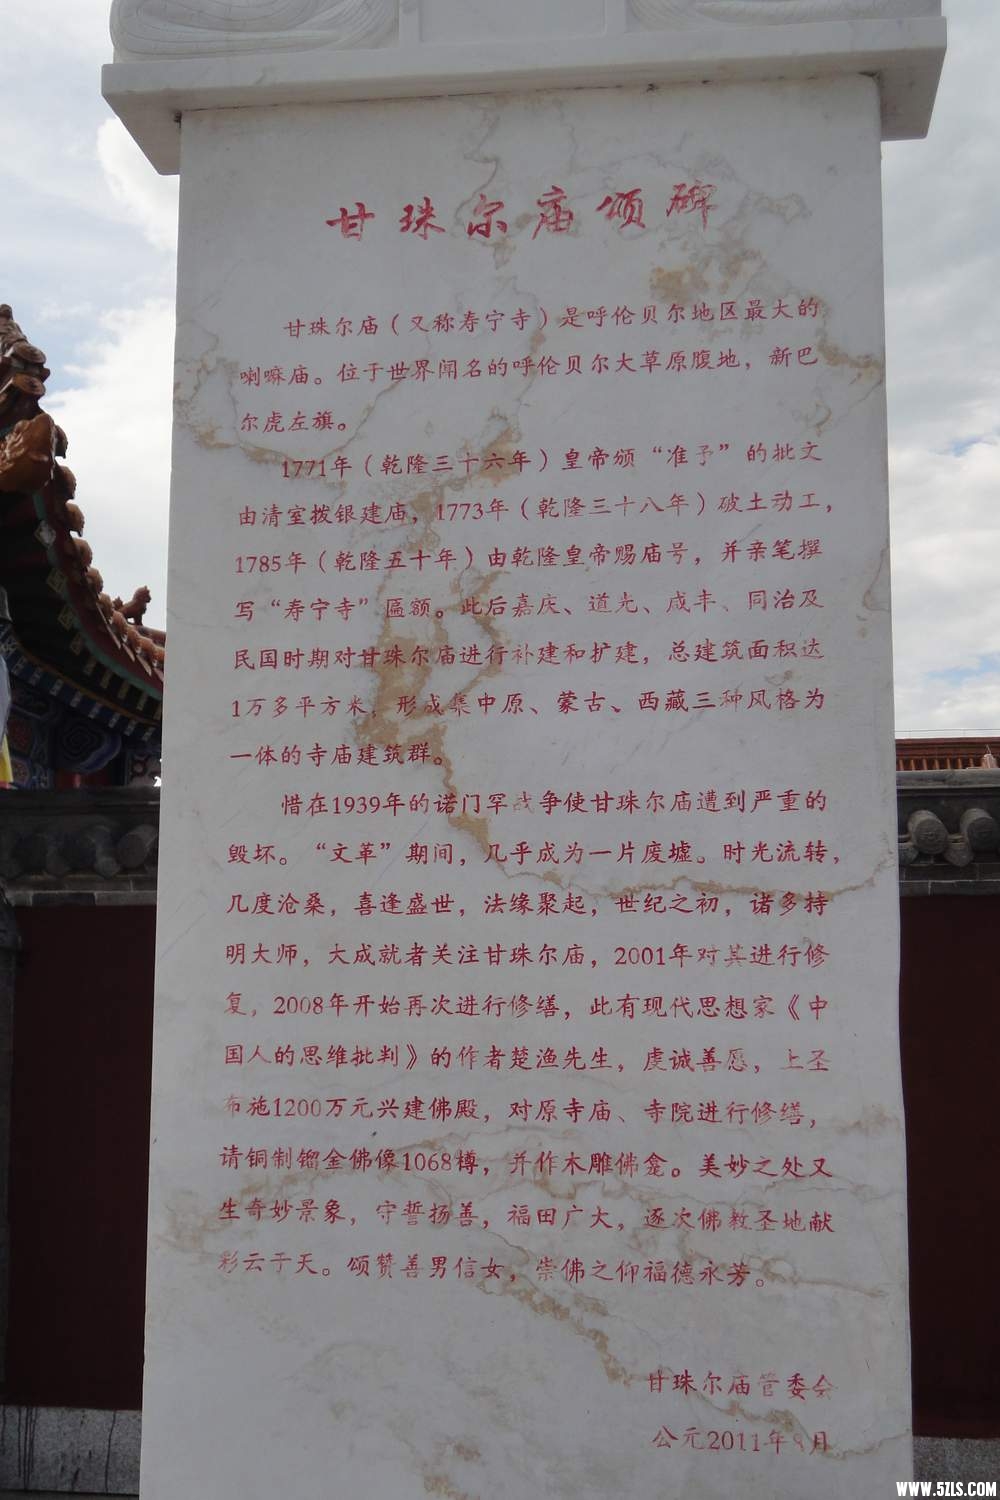 甘珠尔庙颂碑
甘珠尔庙（又称寿宁寺）是呼伦贝尔地区最大的
喇嘛庙。位于世界闻名的呼伦贝尔大草原腹地，新巴
尔虎左旗。
1771年（乾隆三十六年）皇帝颁“准予”的批文
由清室拨银建庙，1773年（乾隆三十八年）破土动工，
1785年（乾隆五十年）由乾隆皇帝赐庙号，并亲笔撰
写“寿宁寺”匾额。此后嘉庆、道光、咸丰、同治及
民国时期对甘珠尔庙进行补建和扩建，总建筑面积达
1万多平方米，形成集中原、蒙古、西藏三种风格为
一体的寺庙建筑群。
惜在1939年的诺门罕战争使甘珠尔庙遭到严重的
毁坏。“文革”期间，几乎成为一片废墟。时光流转，
几度沧桑，喜逢盛世，法缘聚起，世纪之初，诸多持
明大师，大成就者关注甘珠尔庙，2001年对其进行修
复，2008年开始再次进行修缮，此有现代思想家《中
国人的思维批判》的作者楚渔先生，虔诚善愿，上圣
布施1200万元兴建佛殿，对原寺庙、寺院进行修缮，
请铜制镏金佛像1068樽，并作木雕佛龛。美妙之处又
生奇妙景象，守誓扬善，福田广大，逐次佛教圣地献
彩云于天。颂赞善男信女，崇佛之仰福德永芳。
甘珠尔庙管委会
公元2011年8月
WWW.5ZLS.COM